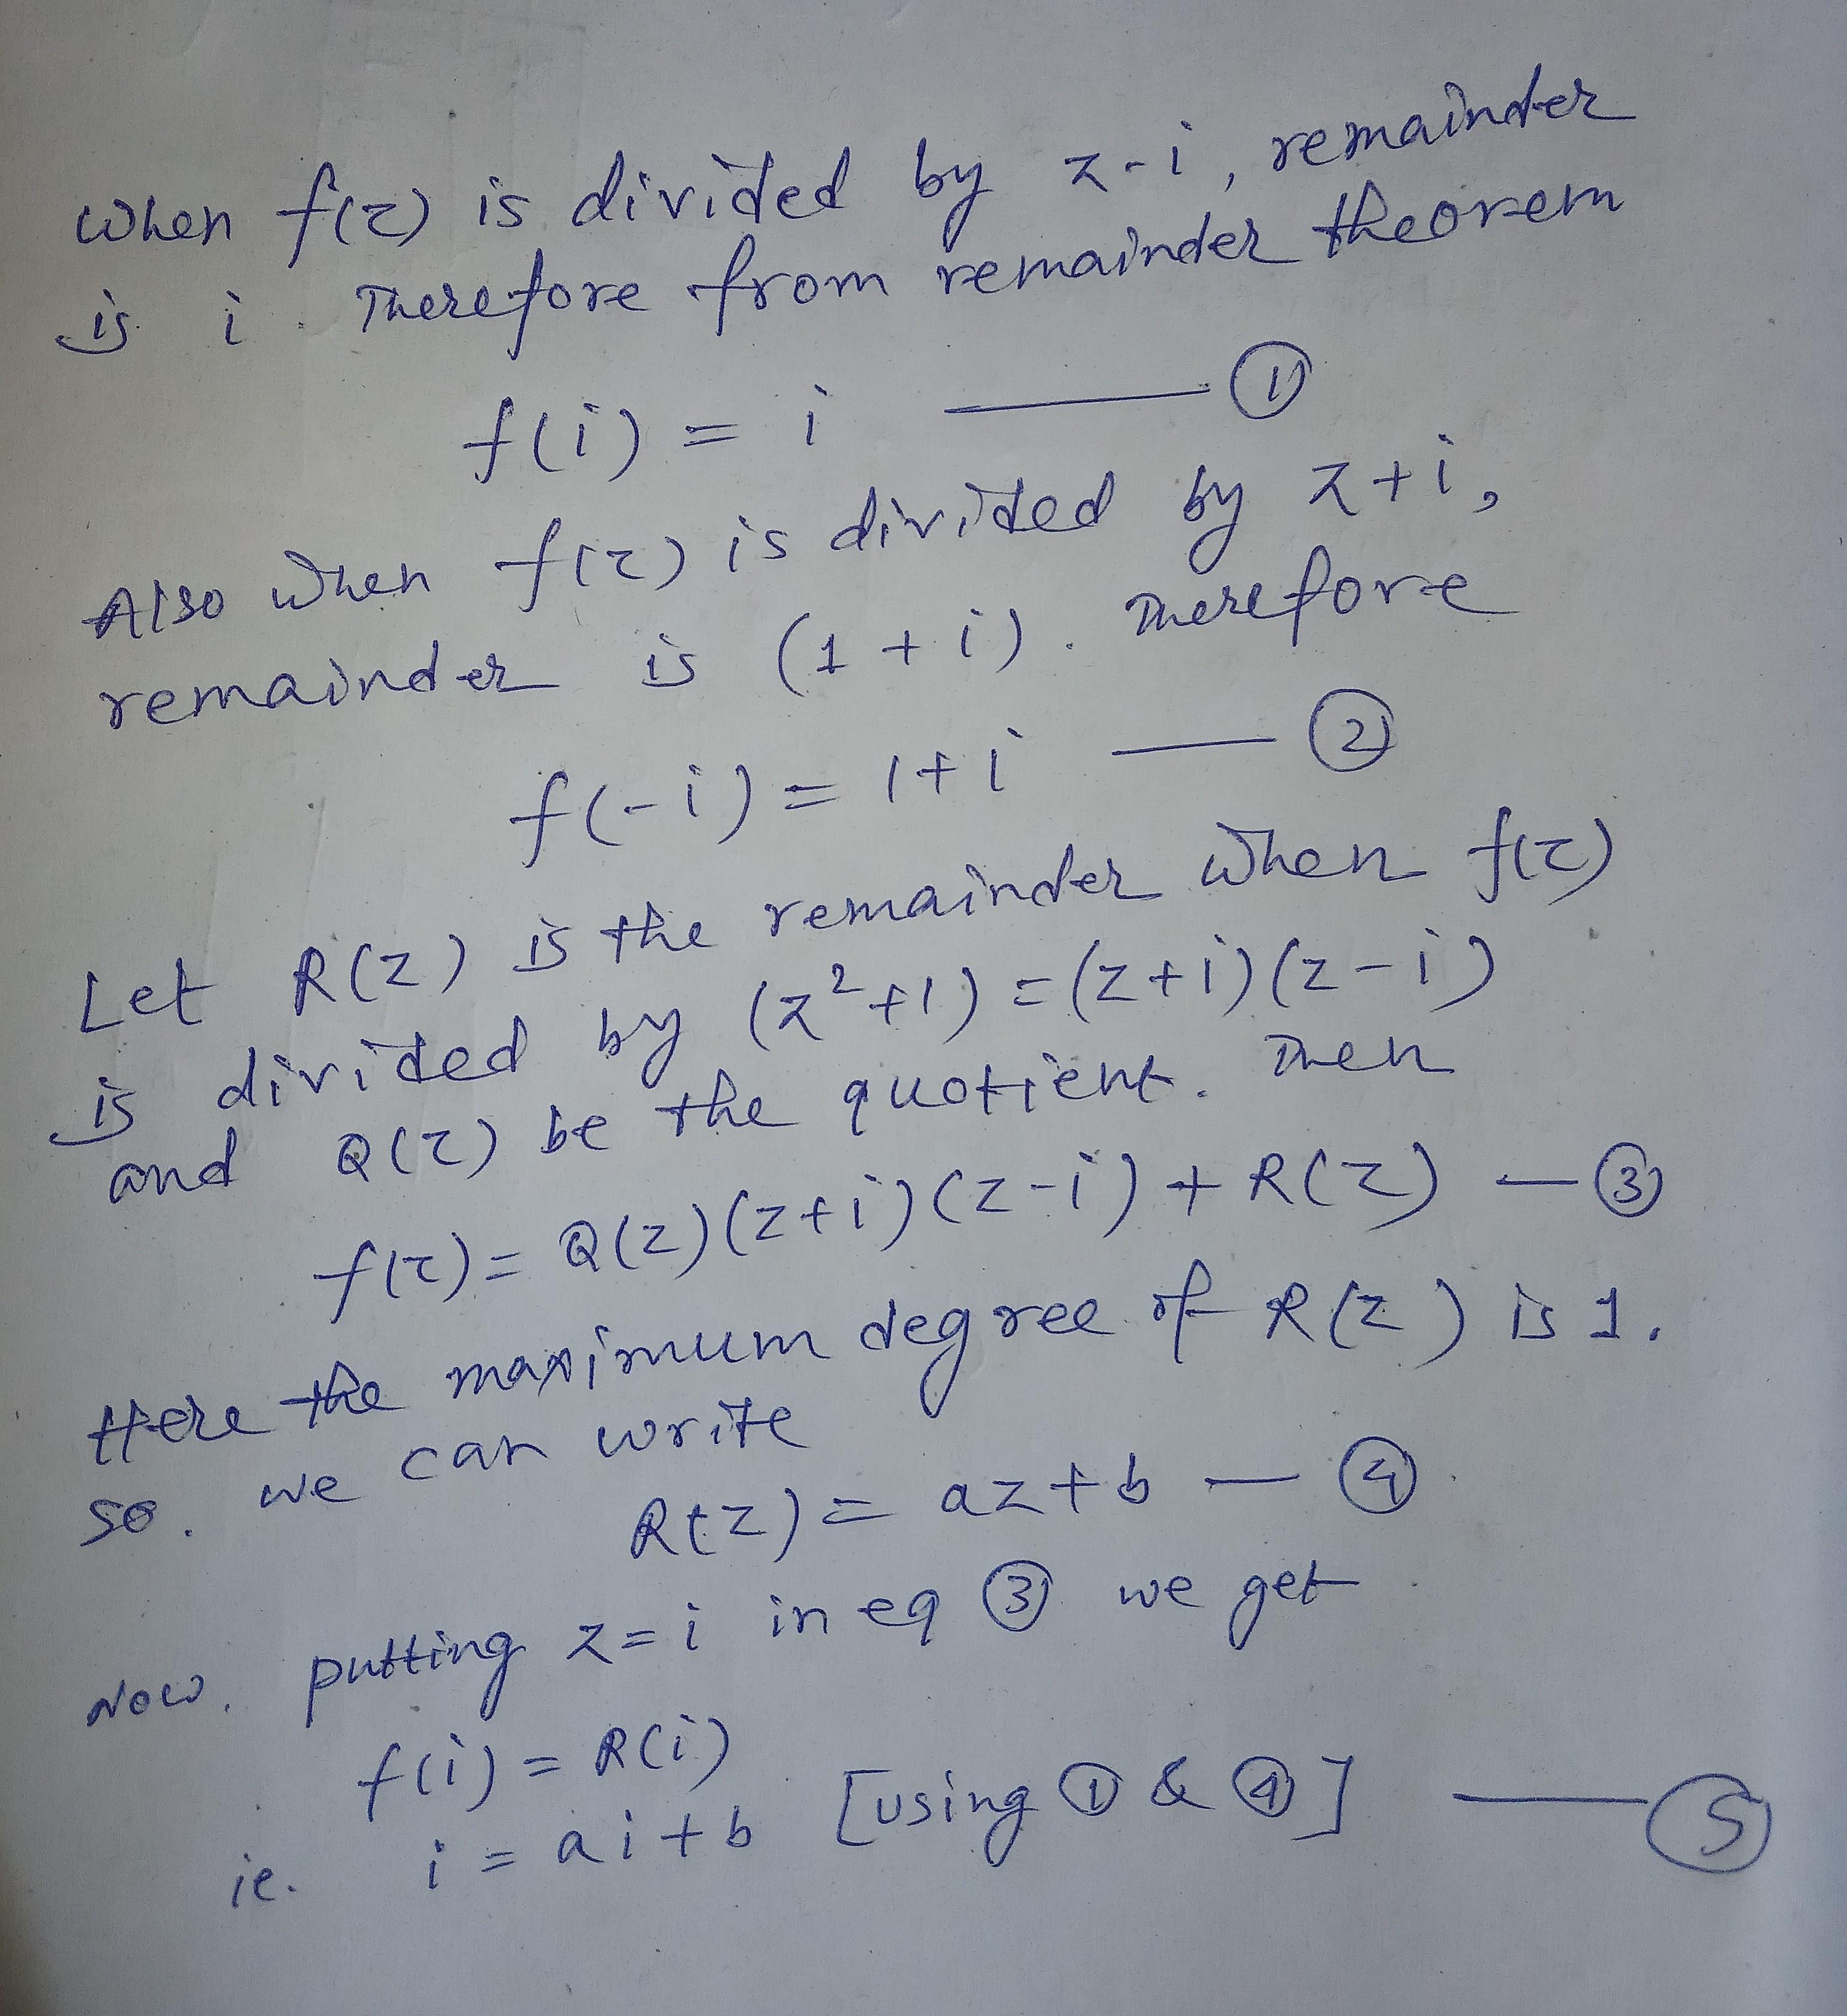 When f(z) is divided by z-i, remainder
is i. Therefore from remainder theorem
f(i) = i —— ①
Also when f(z) is divided by z+i,
remainder is (1+i). Therefore
f(-i) = 1+i — ②
Let R(z) is the remainder when f(z)
is divided by (z²+1) = (z+i)(z-i)
and Q(z) be the quotient. Then
f(z) = Q(z)(z+i)(z-i) + R(z) — ③
Here the maximum degree of R(z) is 1.
So. we can write
R(z) = az+b — ④
Now. putting z=i in eq ③ we get
f(i) = R(i)
ie. i = ai+b [using ① & ④] —— ⑤